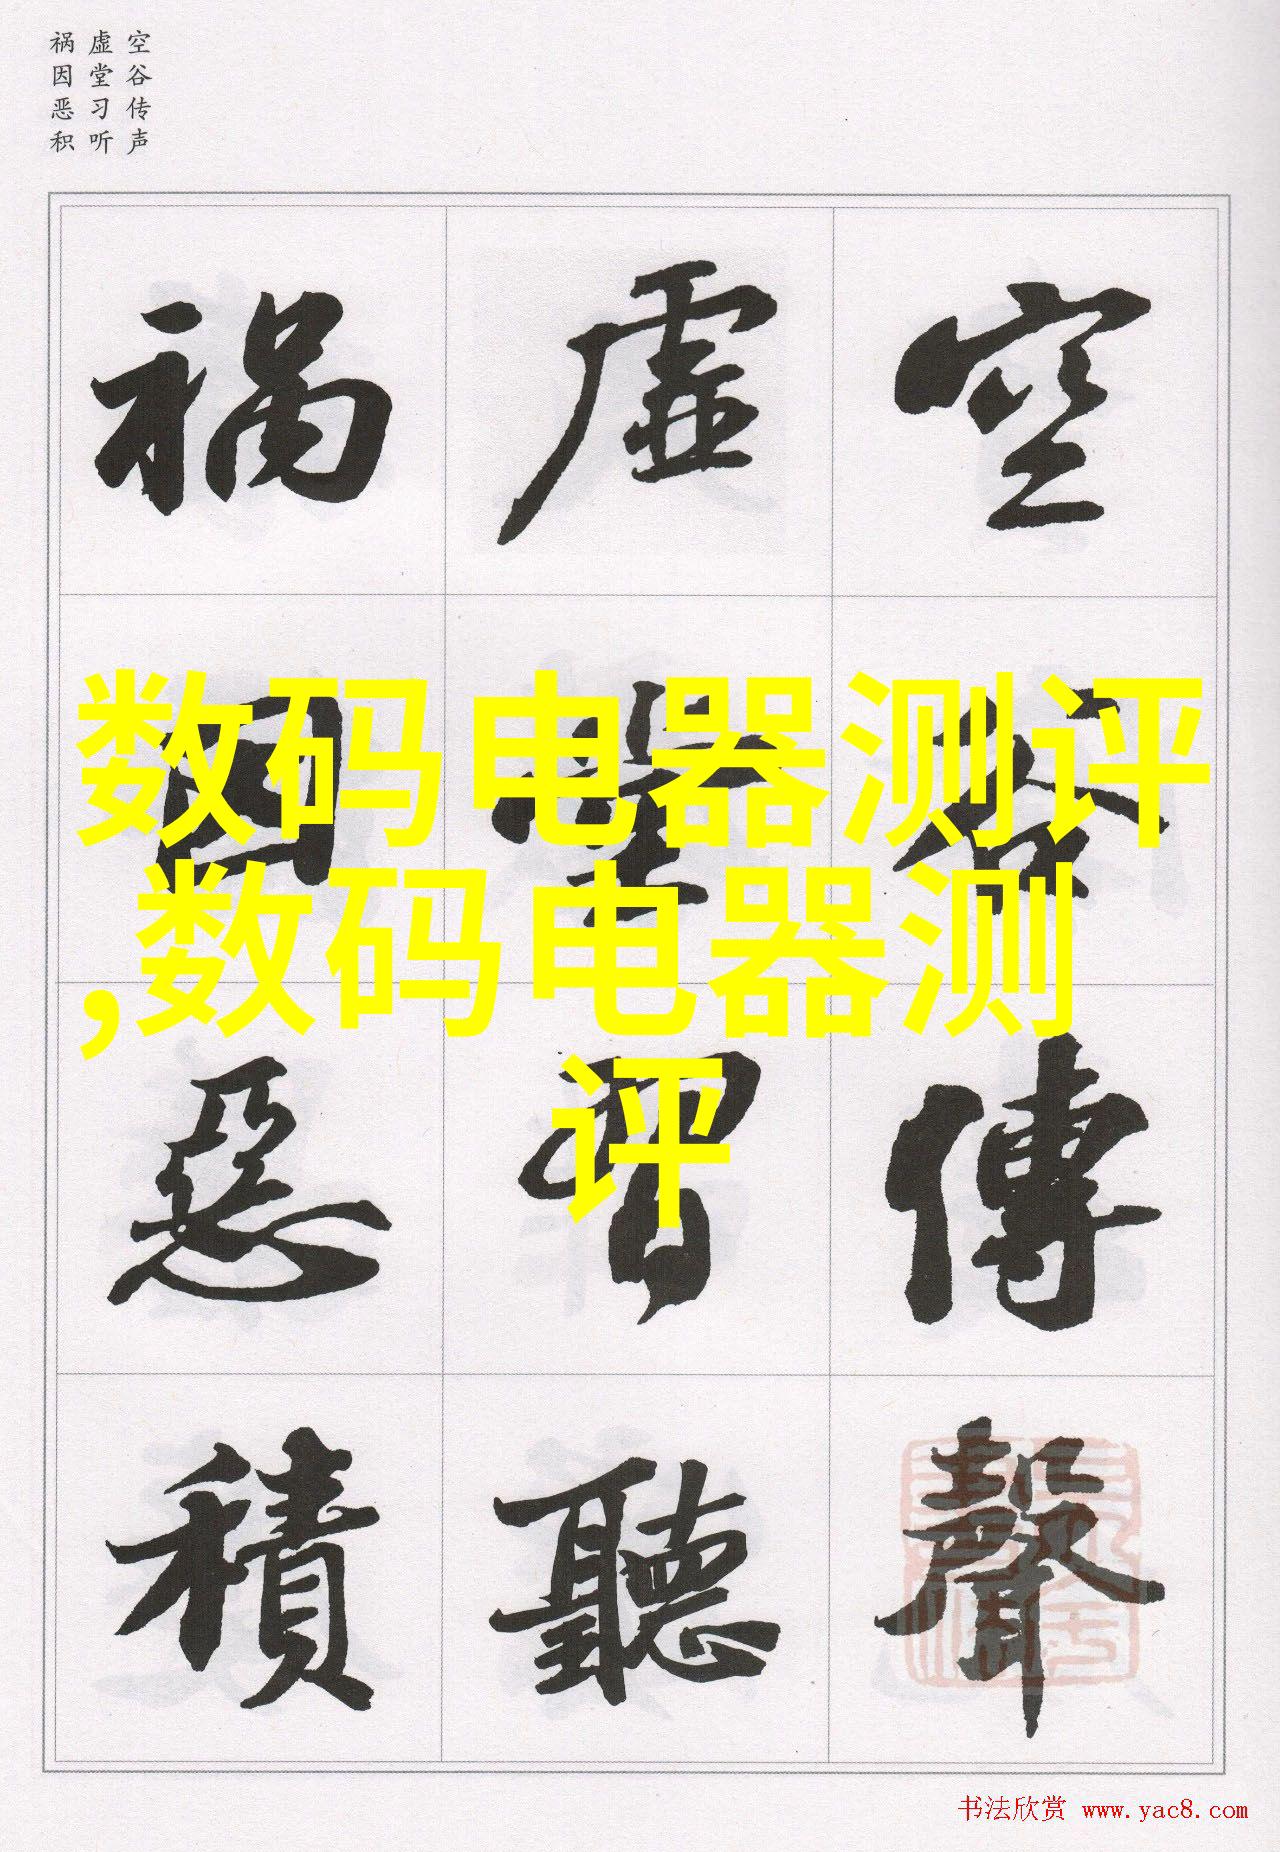 空谷传声
虚堂习听
祸因恶积
空谷傳聲
虛堂習聽
禍因惡積
数码电器测评
,数码电器测
评
书法欣赏 www.yac8.com